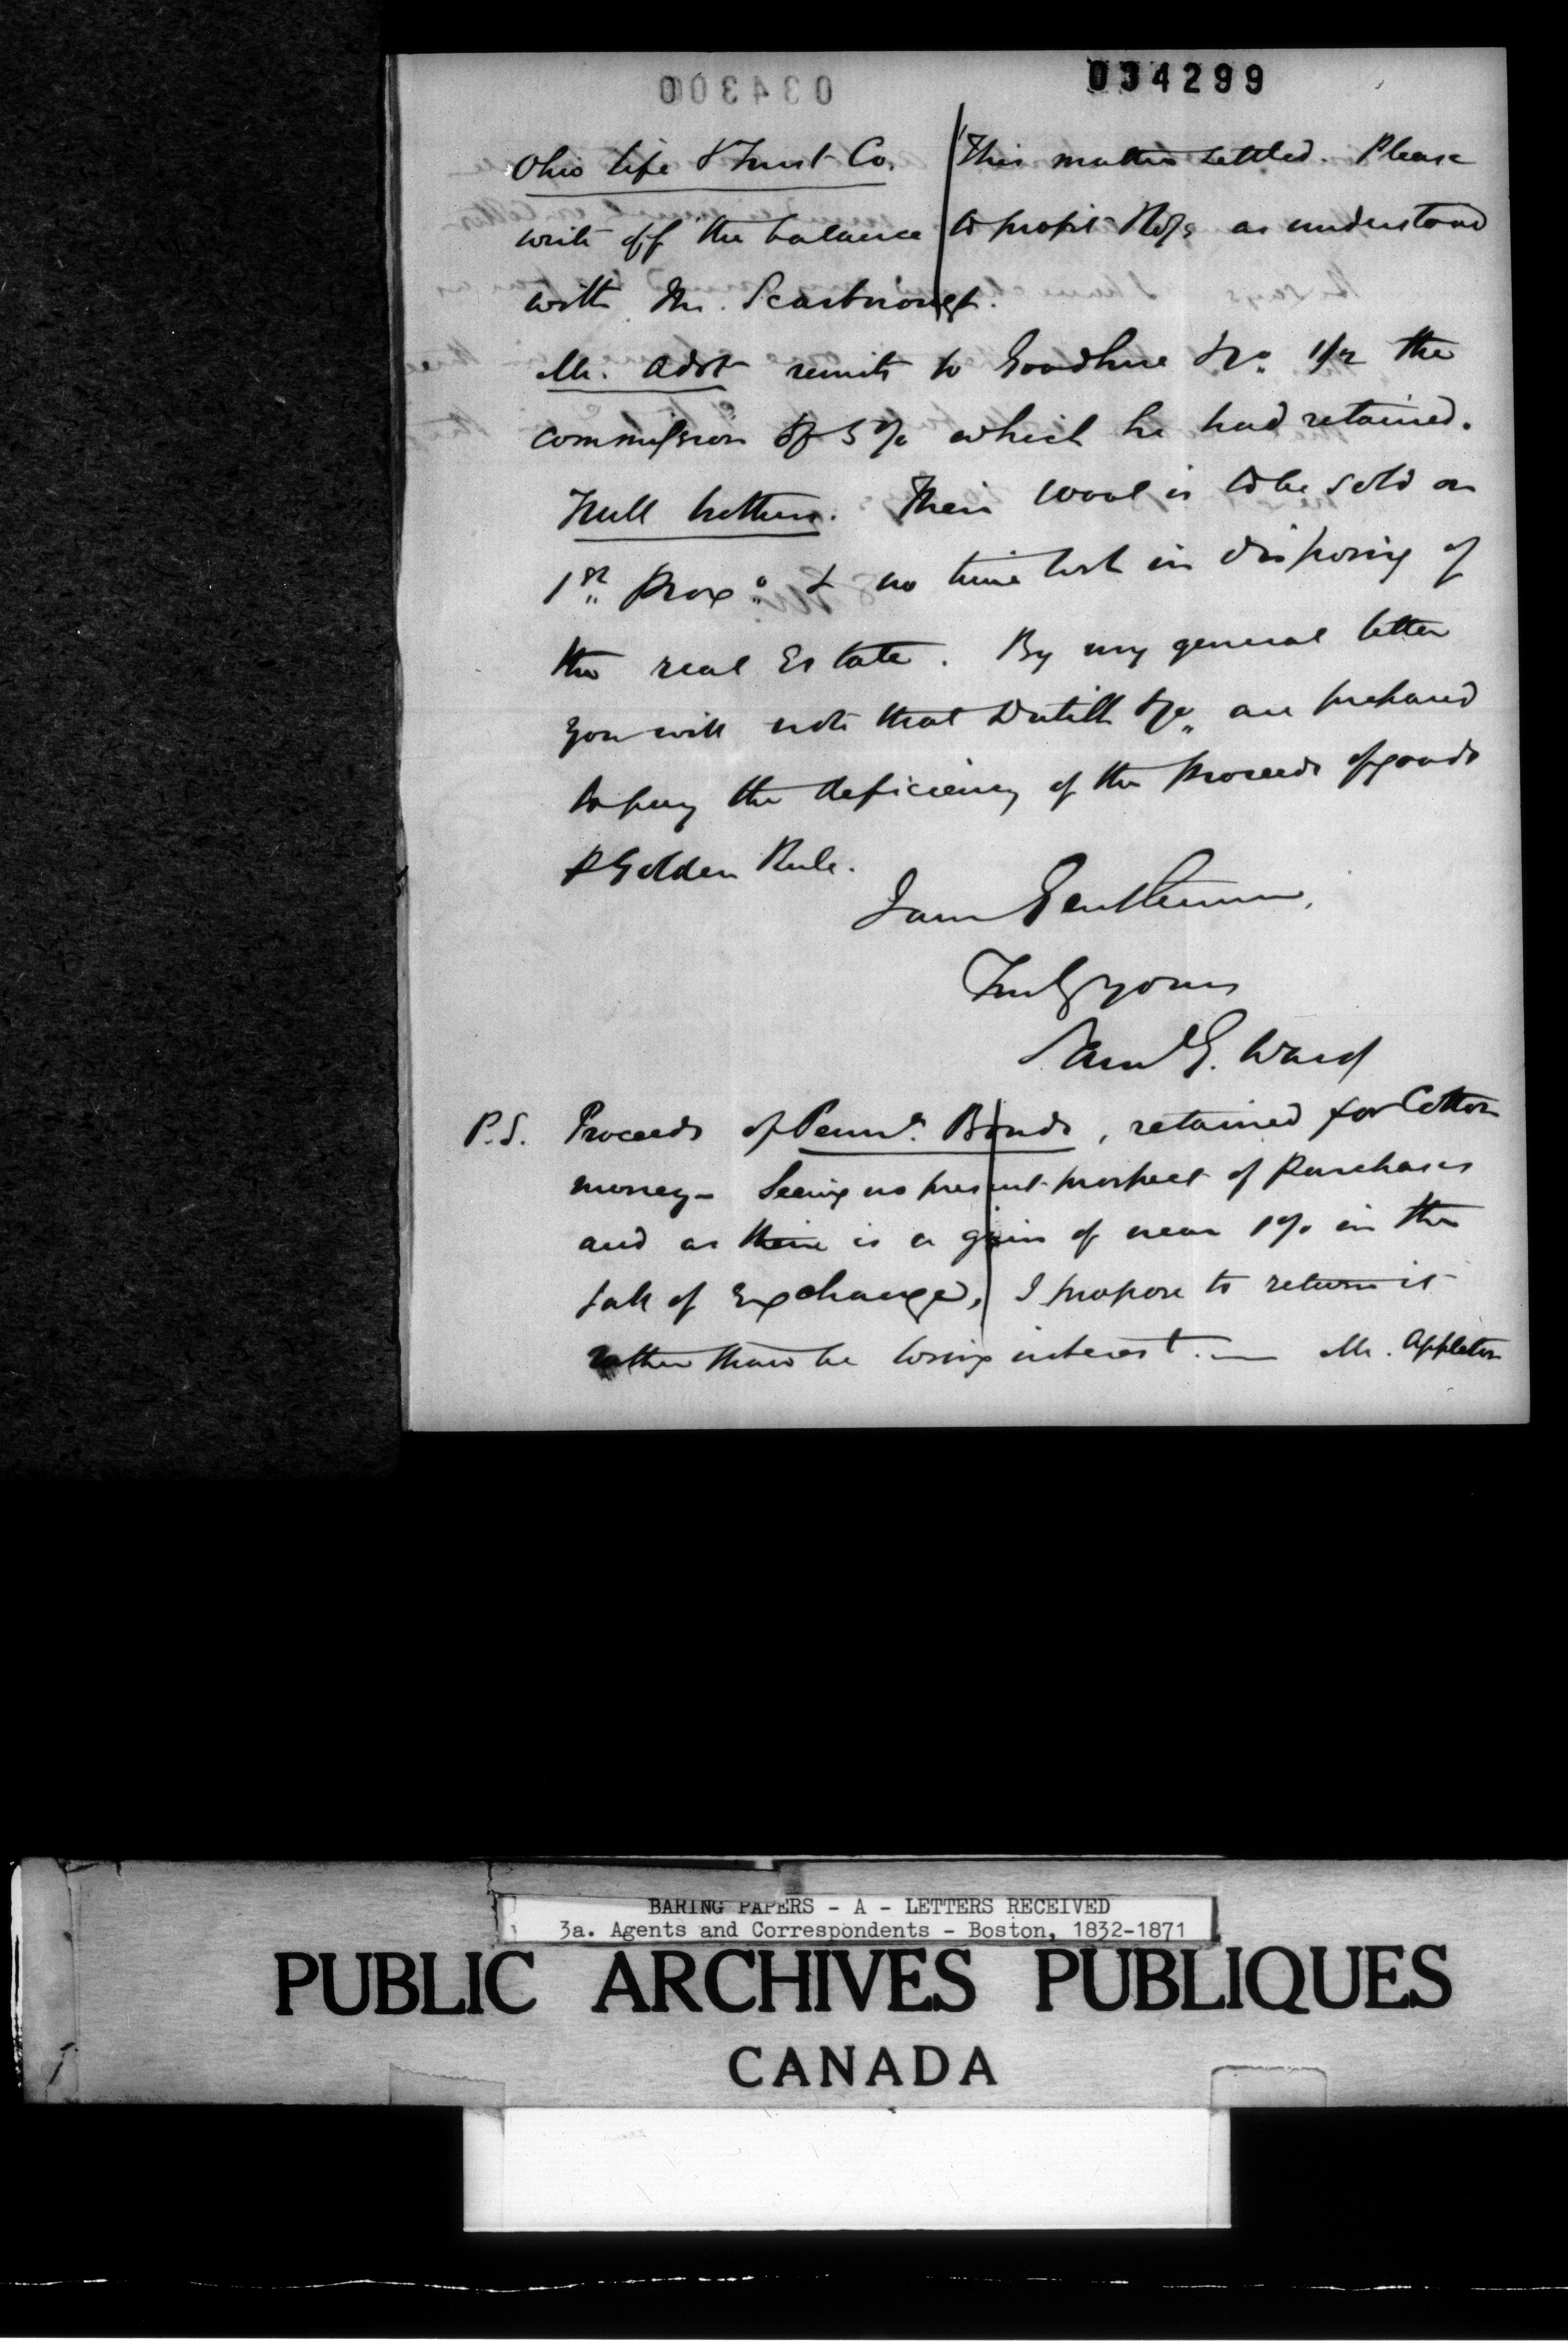 034299
034300
Ohio Life & Trust Co. This matter settled. Please
write off the balance to profit & loss as understood
with Mr. Scarbrough.
Mr. Adst remits to Goodhue &Co. 1/2 the
commission of 5% which he had retained.
Hull brothers. Their wool is to be sold on
1st. Proxo. & no time lost in disposing of
the real Estate. By my general letter
you will note that Dutilh &Co. are prepared
to pay the deficiency of the proceeds of goods
P Golden Rule.
I am Gentlemen,
Truly yours
Saml G. Ward
P.S. Proceeds of Penna. Bonds, retained for Cotton
money - Seeing no present prospect of purchases
and as there is a gain of near 1% in the
fall of Exchange, I propose to return it
rather than be losing interest. — Mr. Appleton
BARING PAPERS - A - LETTERS RECEIVED
3a. Agents and Correspondents - Boston, 1832-1871
PUBLIC ARCHIVES PUBLIQUES
CANADA